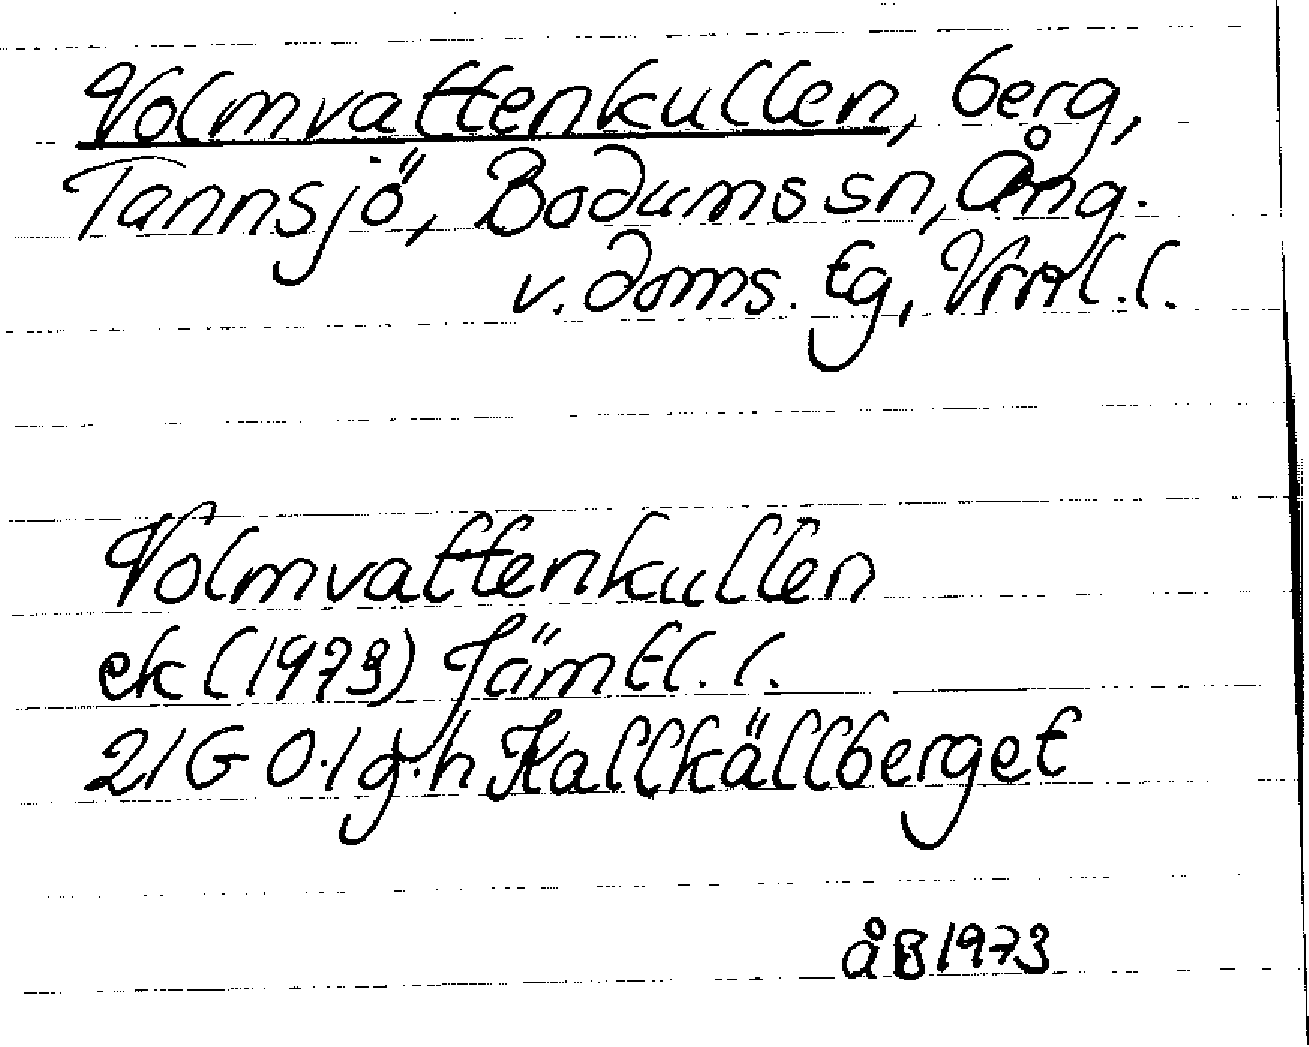 Volmvattenkullen, berg,
Tannsjö, Bodums sn, Ång.
v. doms. tg, Vrnl. l.
Volmvattenkullen
ek (1973) Jämtl. l.
21G 0-1 g-h Kallkällberget
åB 1973